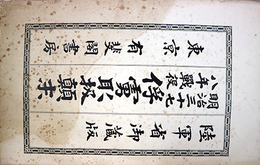 陸軍省御蔵版
明治三十七
八年戦役
俘虜取扱顛末
東京 有斐閣書房